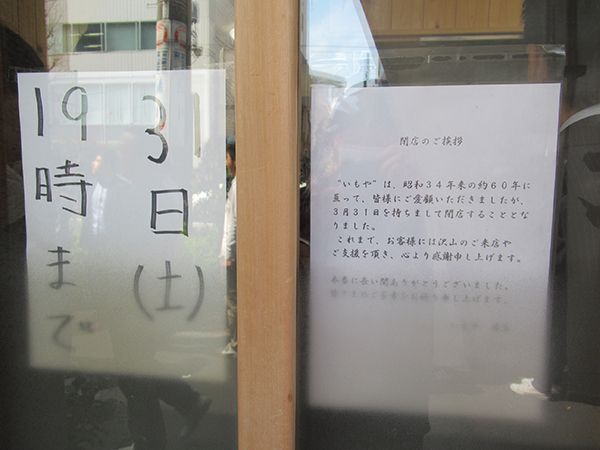 31日(土)
19時まで
閉店のご挨拶
"いもや"は、昭和34年来の約60年に
亘って、皆様にご愛顧いただきましたが、
3月31日を持ちまして閉店することとな
りました。
これまで、お客様には沢山のご来店や
ご支援を頂き、心より感謝申し上げます。
永春に長い間ありがとうございました。